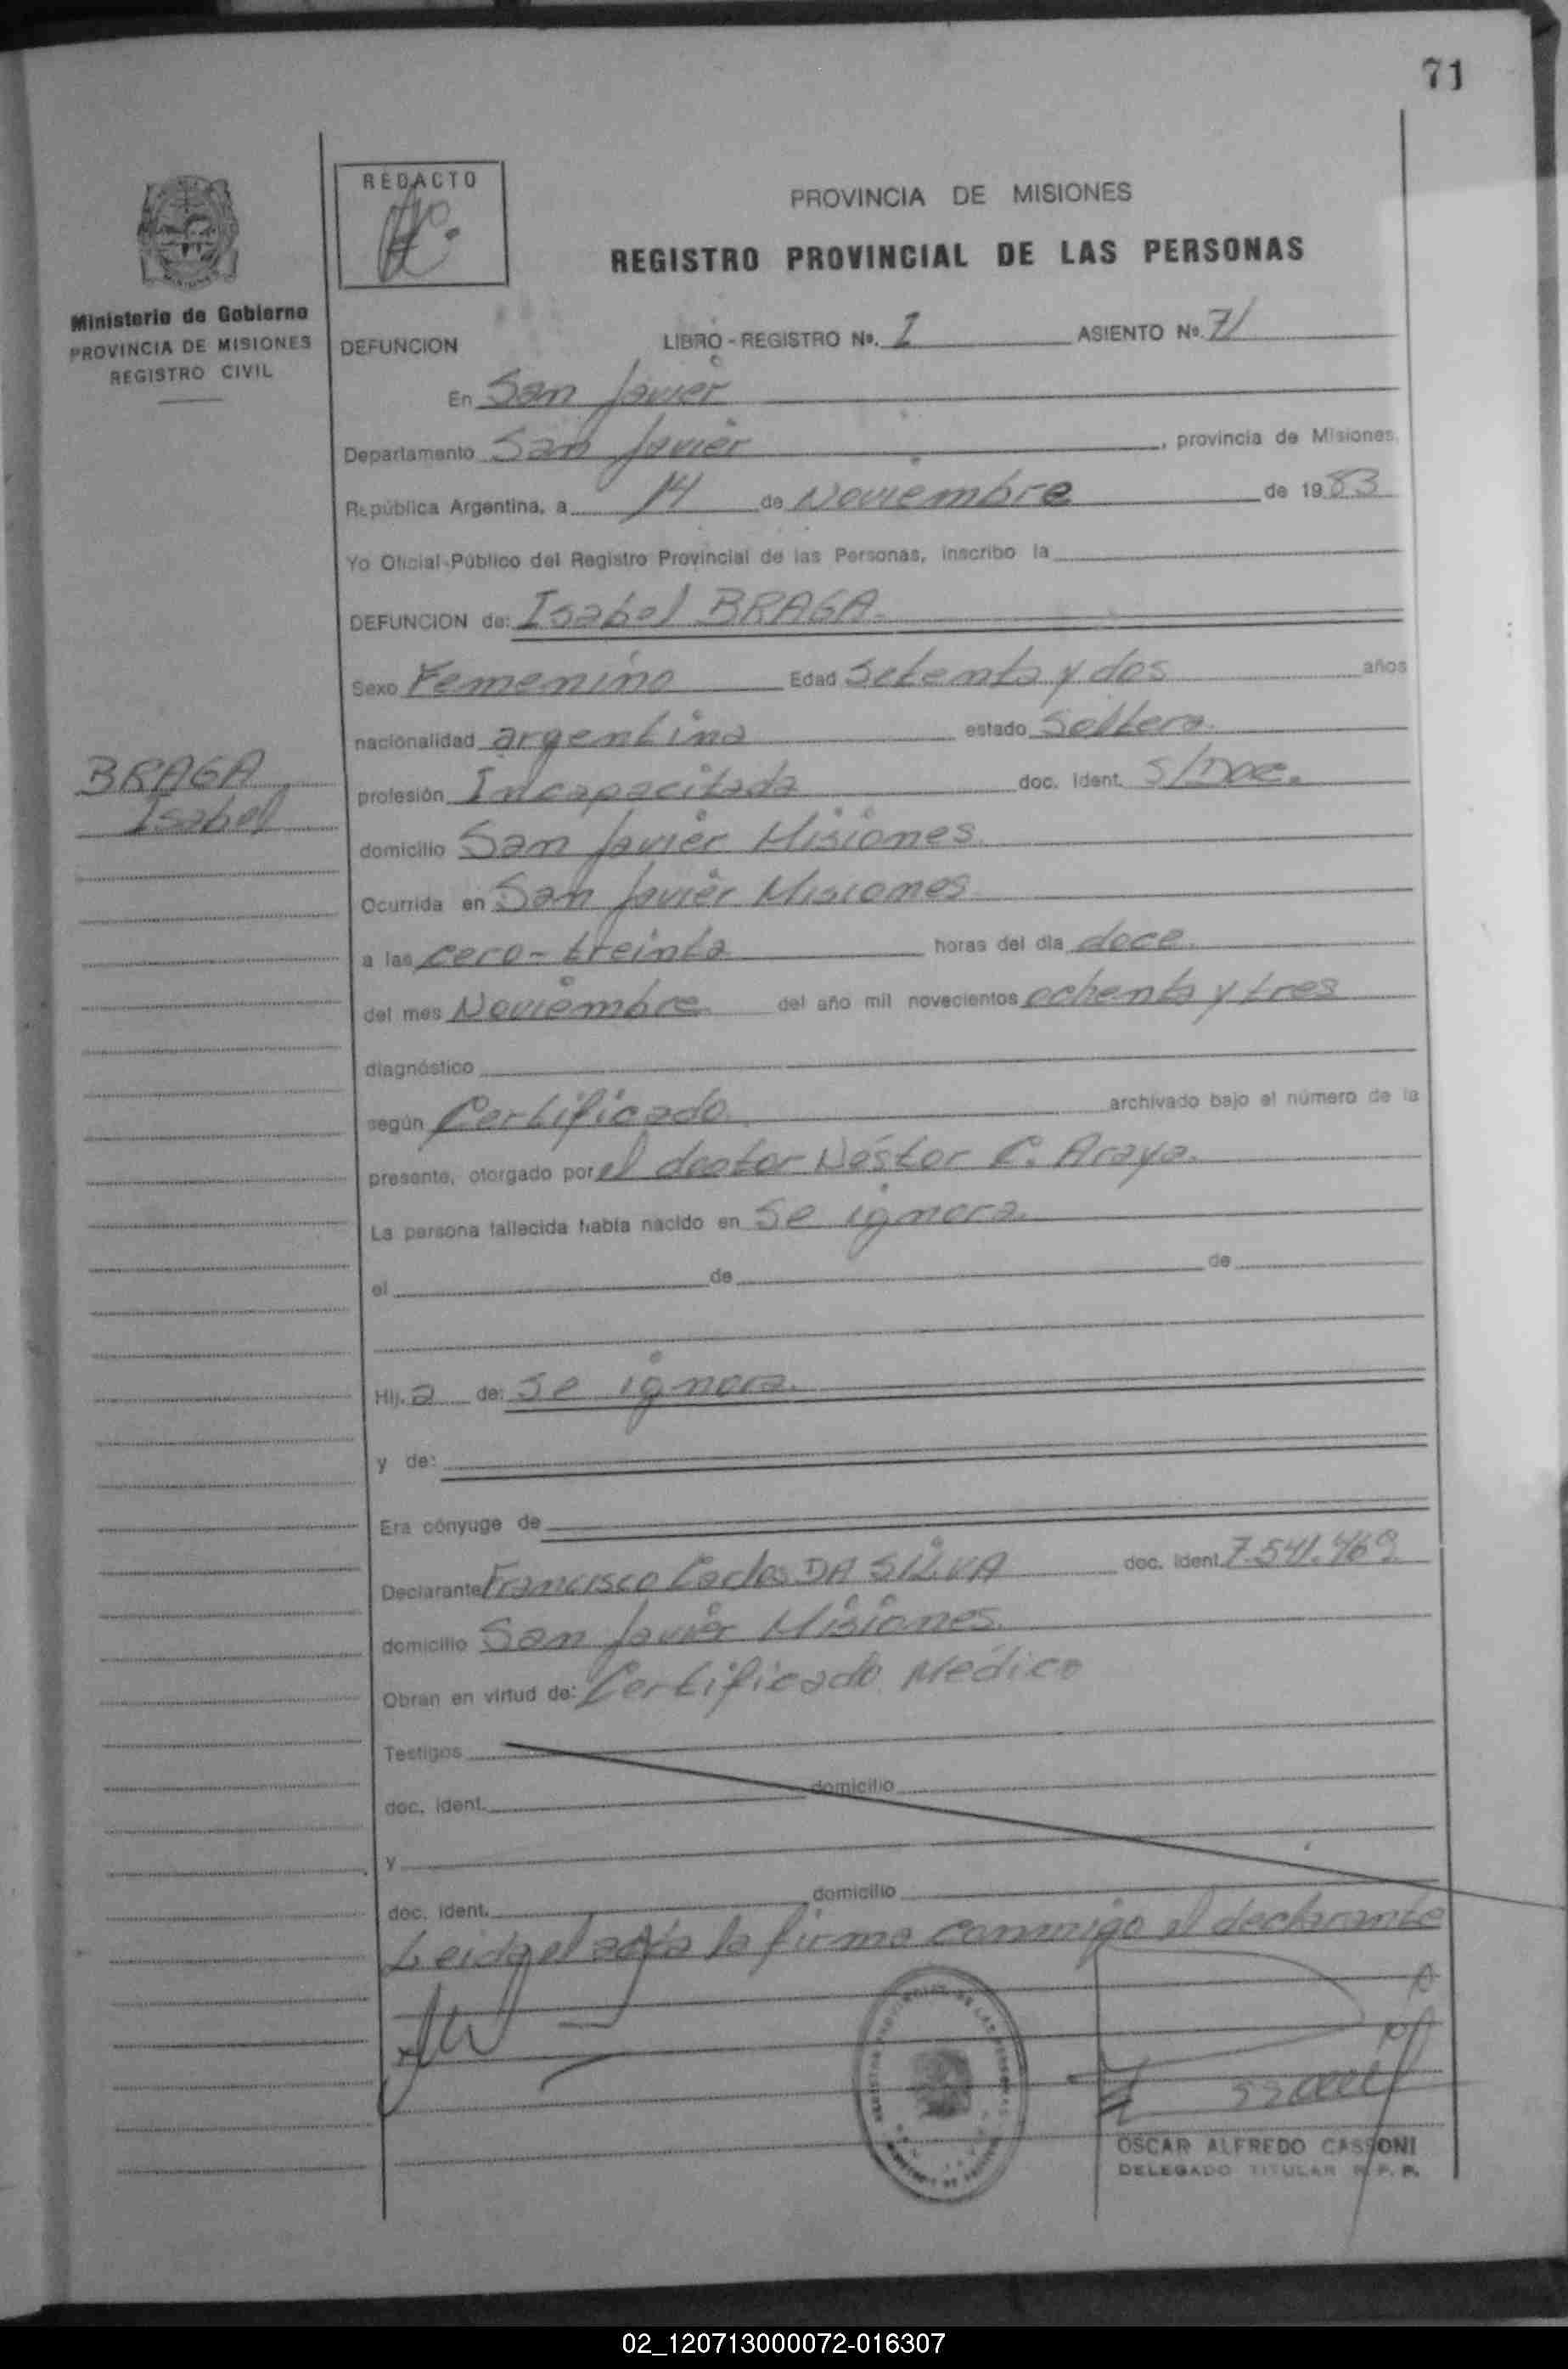 71
REDACTO
PROVINCIA DE MISIONES
REGISTRO PROVINCIAL DE LAS PERSONAS
Ministerio de Gobierno
PROVINCIA DE MISIONES
REGISTRO CIVIL
DEFUNCION LIBRO - REGISTRO Nº. 1 ASIENTO Nº. 71
En San Javier
Departamento San Javier, provincia de Misiones,
República Argentina, a 14 de Noviembre de 1983
Yo Oficial Público del Registro Provincial de las Personas, inscribo la
DEFUNCION de: Isabel BRAGA.
Sexo Femenino Edad Setenta y dos años
nacionalidad argentina estado Soltera.
BRAGA
Isabel
profesión Incapacitada doc. ident. S/Doc.
domicilio San Javier Misiones.
Ocurrida en San Javier Misiones
a las cero-treinta horas del día doce
del mes Noviembre del año mil novecientos ochenta y tres
diagnóstico
según Certificado archivado bajo el número de la
presente, otorgado por el doctor Néstor C. Araya.
La persona fallecida había nacido en Se ignora.
el de de
Hij.a de: Se ignora.
y de:
Era cónyuge de
Declarante Francisco Carlos DA SILVA doc. ident. 7.541.469
domicilio San Javier Misiones.
Obran en virtud de: Certificado Medico
Testigos
doc. ident. domicilio
y
doc. ident. domicilio
Leida el acta la firma conmigo el declarante
OSCAR ALFREDO CASSONI
DELEGADO TITULAR R. P. P.
02_120713000072-016307